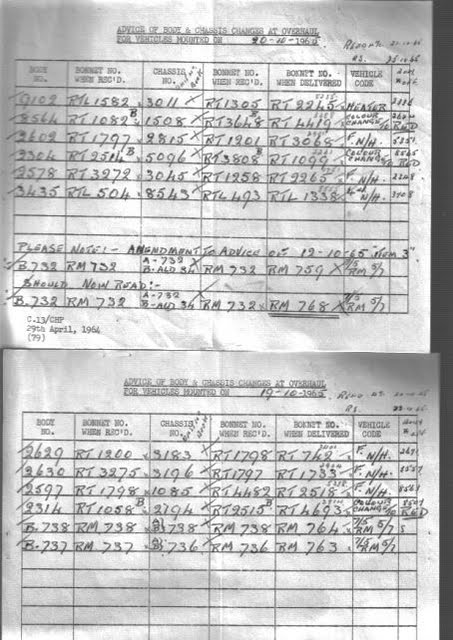 ADVICE OF BODY & CHASSIS CHANGES AT OVERHAUL
FOR VEHICLES MOUNTED ON 20-10-1965
BODY NO. BONNET NO. WHEN REC'D. CHASSIS NO. BONNET NO. WHEN REC'D. BONNET NO. WHEN DELIVERED VEHICLE CODE
9102 RTL 1582 3011 RT 1305 RT 2245 HEATER
8564 RT 1082 B 1508 RT 3648 B RT 4479 COLOUR CHANGE
2602 RT 1797 2815 RT 1201 RT 3068 F. N/H.
2304 RT 2514 B 5096 RT 3808 B RT 1099 COLOUR CHANGE
2578 RT 3272 3045 RT 1258 RT 2265 F. N/H.
3435 RTL 504 8543 RTL 493 RTL 1338 N/H.
PLEASE NOTE:- AMENDMENT TO ADVICE OF 19-10-65 "ITEM 3"
B.732 RM 732 A-732 B-ALD 34 RM 732 RM 759 7/5 RM 5/7
SHOULD NOW READ:-
B.732 RM 732 A-732 B-ALD 34 RM 732 RM 768 7/5 RM 5/7
C.13/CHP
29th April, 1964
(79)
ADVICE OF BODY & CHASSIS CHANGES AT OVERHAUL
FOR VEHICLES MOUNTED ON 19-10-1965
BODY NO. BONNET NO. WHEN REC'D. CHASSIS NO. BONNET NO. WHEN REC'D. BONNET NO. WHEN DELIVERED VEHICLE CODE
2629 RT 1200 3183 RT 1798 RT 742 F. N/H.
2630 RT 3275 3196 RT 1797 RT 1733 F. N/H.
2597 RT 1798 1085 RT 4482 RT 2518 F. N/H.
2314 RT 1058 B 2794 RT 2515 B RT 4693 COLOUR CHANGE
B.738 RM 738 738 RM 738 RM 764 7/5 RM 5/7
B.737 RM 737 736 RM 736 RM 763 7/5 RM 5/7